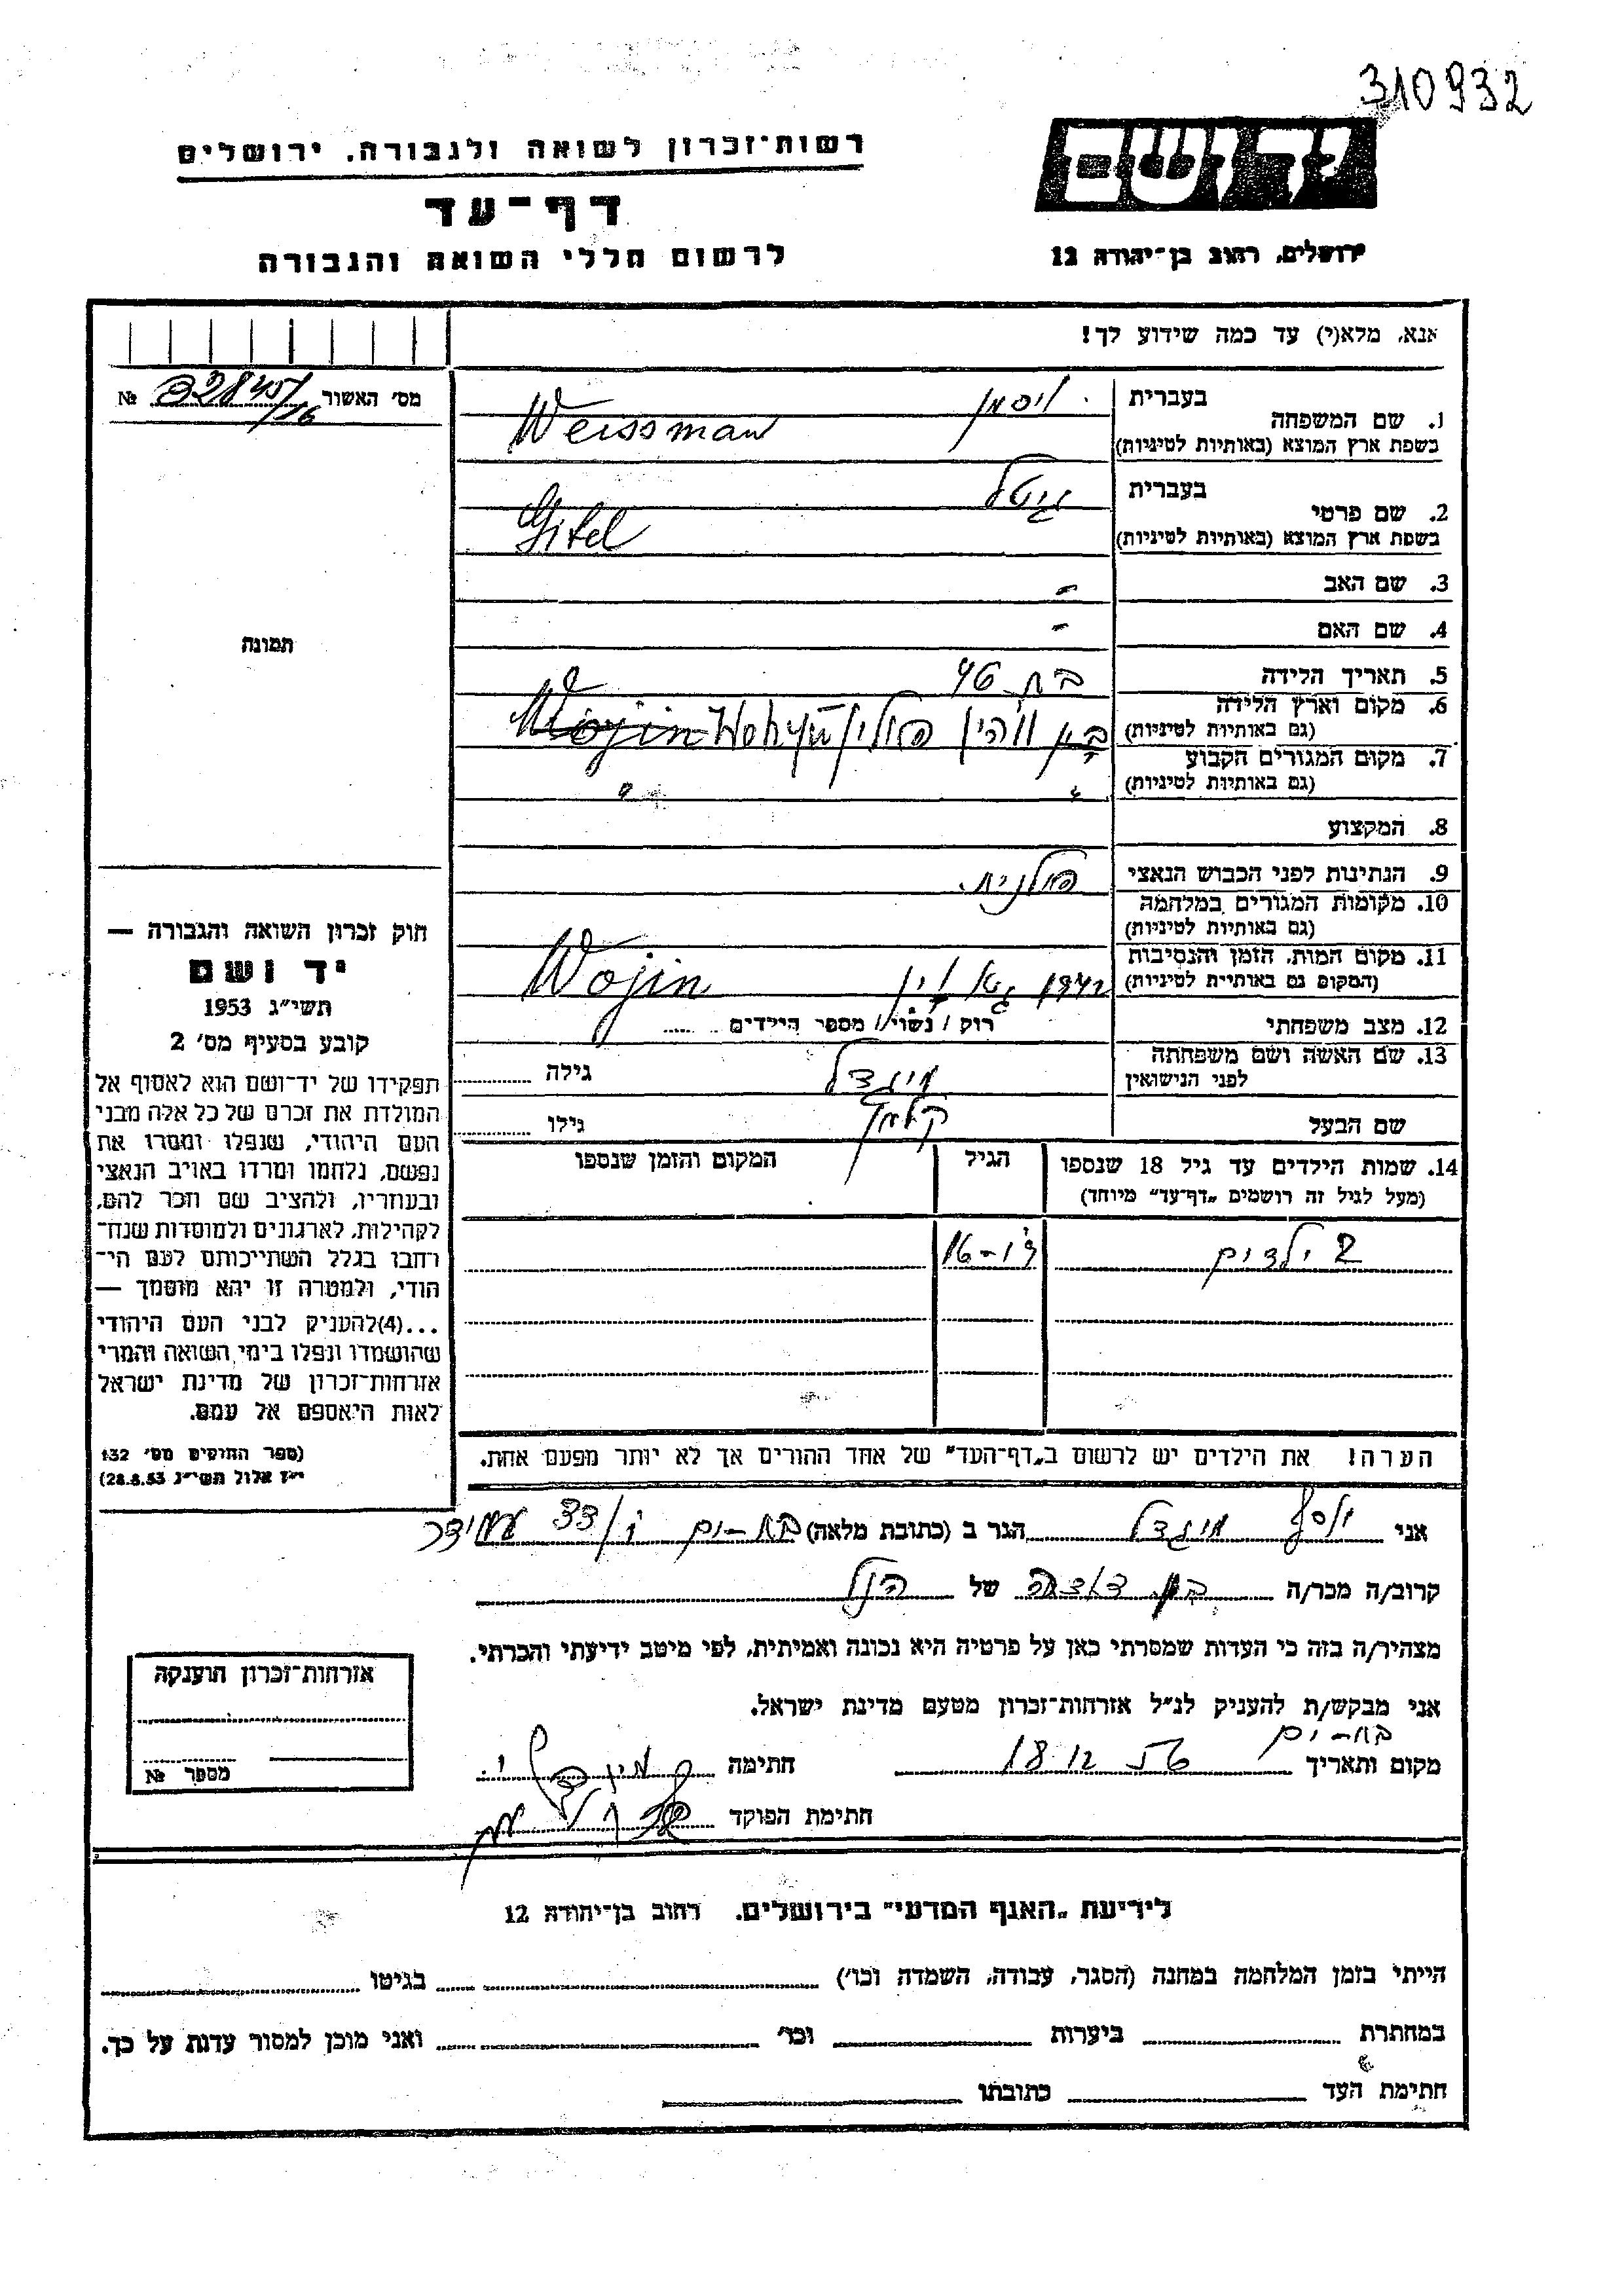 310932
יד ושם
ירושלים, רחוב בן־יהודה 12
רשות־זכרון לשואה ולגבורה, ירושלים
דף־עד
לרשום חללי השואה והגבורה
אנא, מלא(י) עד כמה שידוע לך!
מס׳ האשור № 32845/16
תמונה
1. שם המשפחה
בעברית ויסמן
בשפת ארץ המוצא (באותיות לטיניות) Weissman
2. שם פרטי
בעברית גיטל
בשפת ארץ המוצא (באותיות לטיניות) Gitel
3. שם האב -
4. שם האם -
5. תאריך הלידה בת 46
6. מקום וארץ הלידה
(גם באותיות לטיניות) פולין Wohyń Wojin
7. מקום המגורים הקבוע
(גם באותיות לטיניות) "
8. המקצוע
9. הנתינות לפני הכבוש הנאצי פולנית
10. מקומות המגורים במלחמה
(גם באותיות לטיניות)
11. מקום המות, הזמן והנסיבות
(המקום גם באותיית לטיניות) 1942 Wojin
12. מצב משפחתי רוק / נשוי / מספר הילדים
13. שם האשה ושם משפחתה
לפני הנישואין מיגדל גילה
שם הבעל קלמן גילו
14. שמות הילדים עד גיל 18 שנספו
(מעל לגיל זה רושמים „דף־עד״ מיוחד)
הגיל
המקום והזמן שנספו
2 ילדים 16-
הערה! את הילדים יש לרשום ב„דף־העד״ של אחד ההורים אך לא יותר מפעם אחת.
חוק זכרון השואה והגבורה —
יד ושם
תשי״ג 1953
קובע בסעיף מס׳ 2
תפקידו של יד־ושם הוא לאסוף אל
המולדת את זכרם של כל אלה מבני
העם היהודי, שנפלו ומסרו את
נפשם, נלחמו ומרדו באויב הנאצי
ובעוזריו, ולהציב שם וזכר להם,
לקהילות, לארגונים ולמוסדות שנח־
רחבו בגלל השתייכותם לעם הי־
הודי, ולמטרה זו יהא מוסמך —
...(4)להעניק לבני העם היהודי
שהושמדו ונפלו בימי השואה והמרי
אזרחות־זכרון של מדינת ישראל
לאות היאספם אל עמם.
(ספר החוקים מס׳ 132
י״ז אלול תשי״ג 28.8.53)
אני יוסף מיגדל הגר ב (כתובת מלאה) בת-ים 33 עמידר
קרוב/ה מכר/ה בן דודה של הנ״ל
מצהיר/ה בזה כי העדות שמסרתי כאן על פרטיה היא נכונה ואמיתית, לפי מיטב ידיעתי והכרתי.
אני מבקש/ת להעניק לנ״ל אזרחות־זכרון מטעם מדינת ישראל.
מקום ותאריך בת-ים 18 12 חתימה מיגדל י.
חתימת הפוקד
אזרחות־זכרון הוענקה
מספר №
לידיעת „האגף המדעי״ בירושלים. רחוב בן־יהודה 12
הייתי בזמן המלחמה במחנה (הסגר, עבודה, השמדה וכו׳) בגיטו
במחתרת ביערות וכו׳ ואני מוכן למסור עדות על כך.
חתימת העד כתובתו